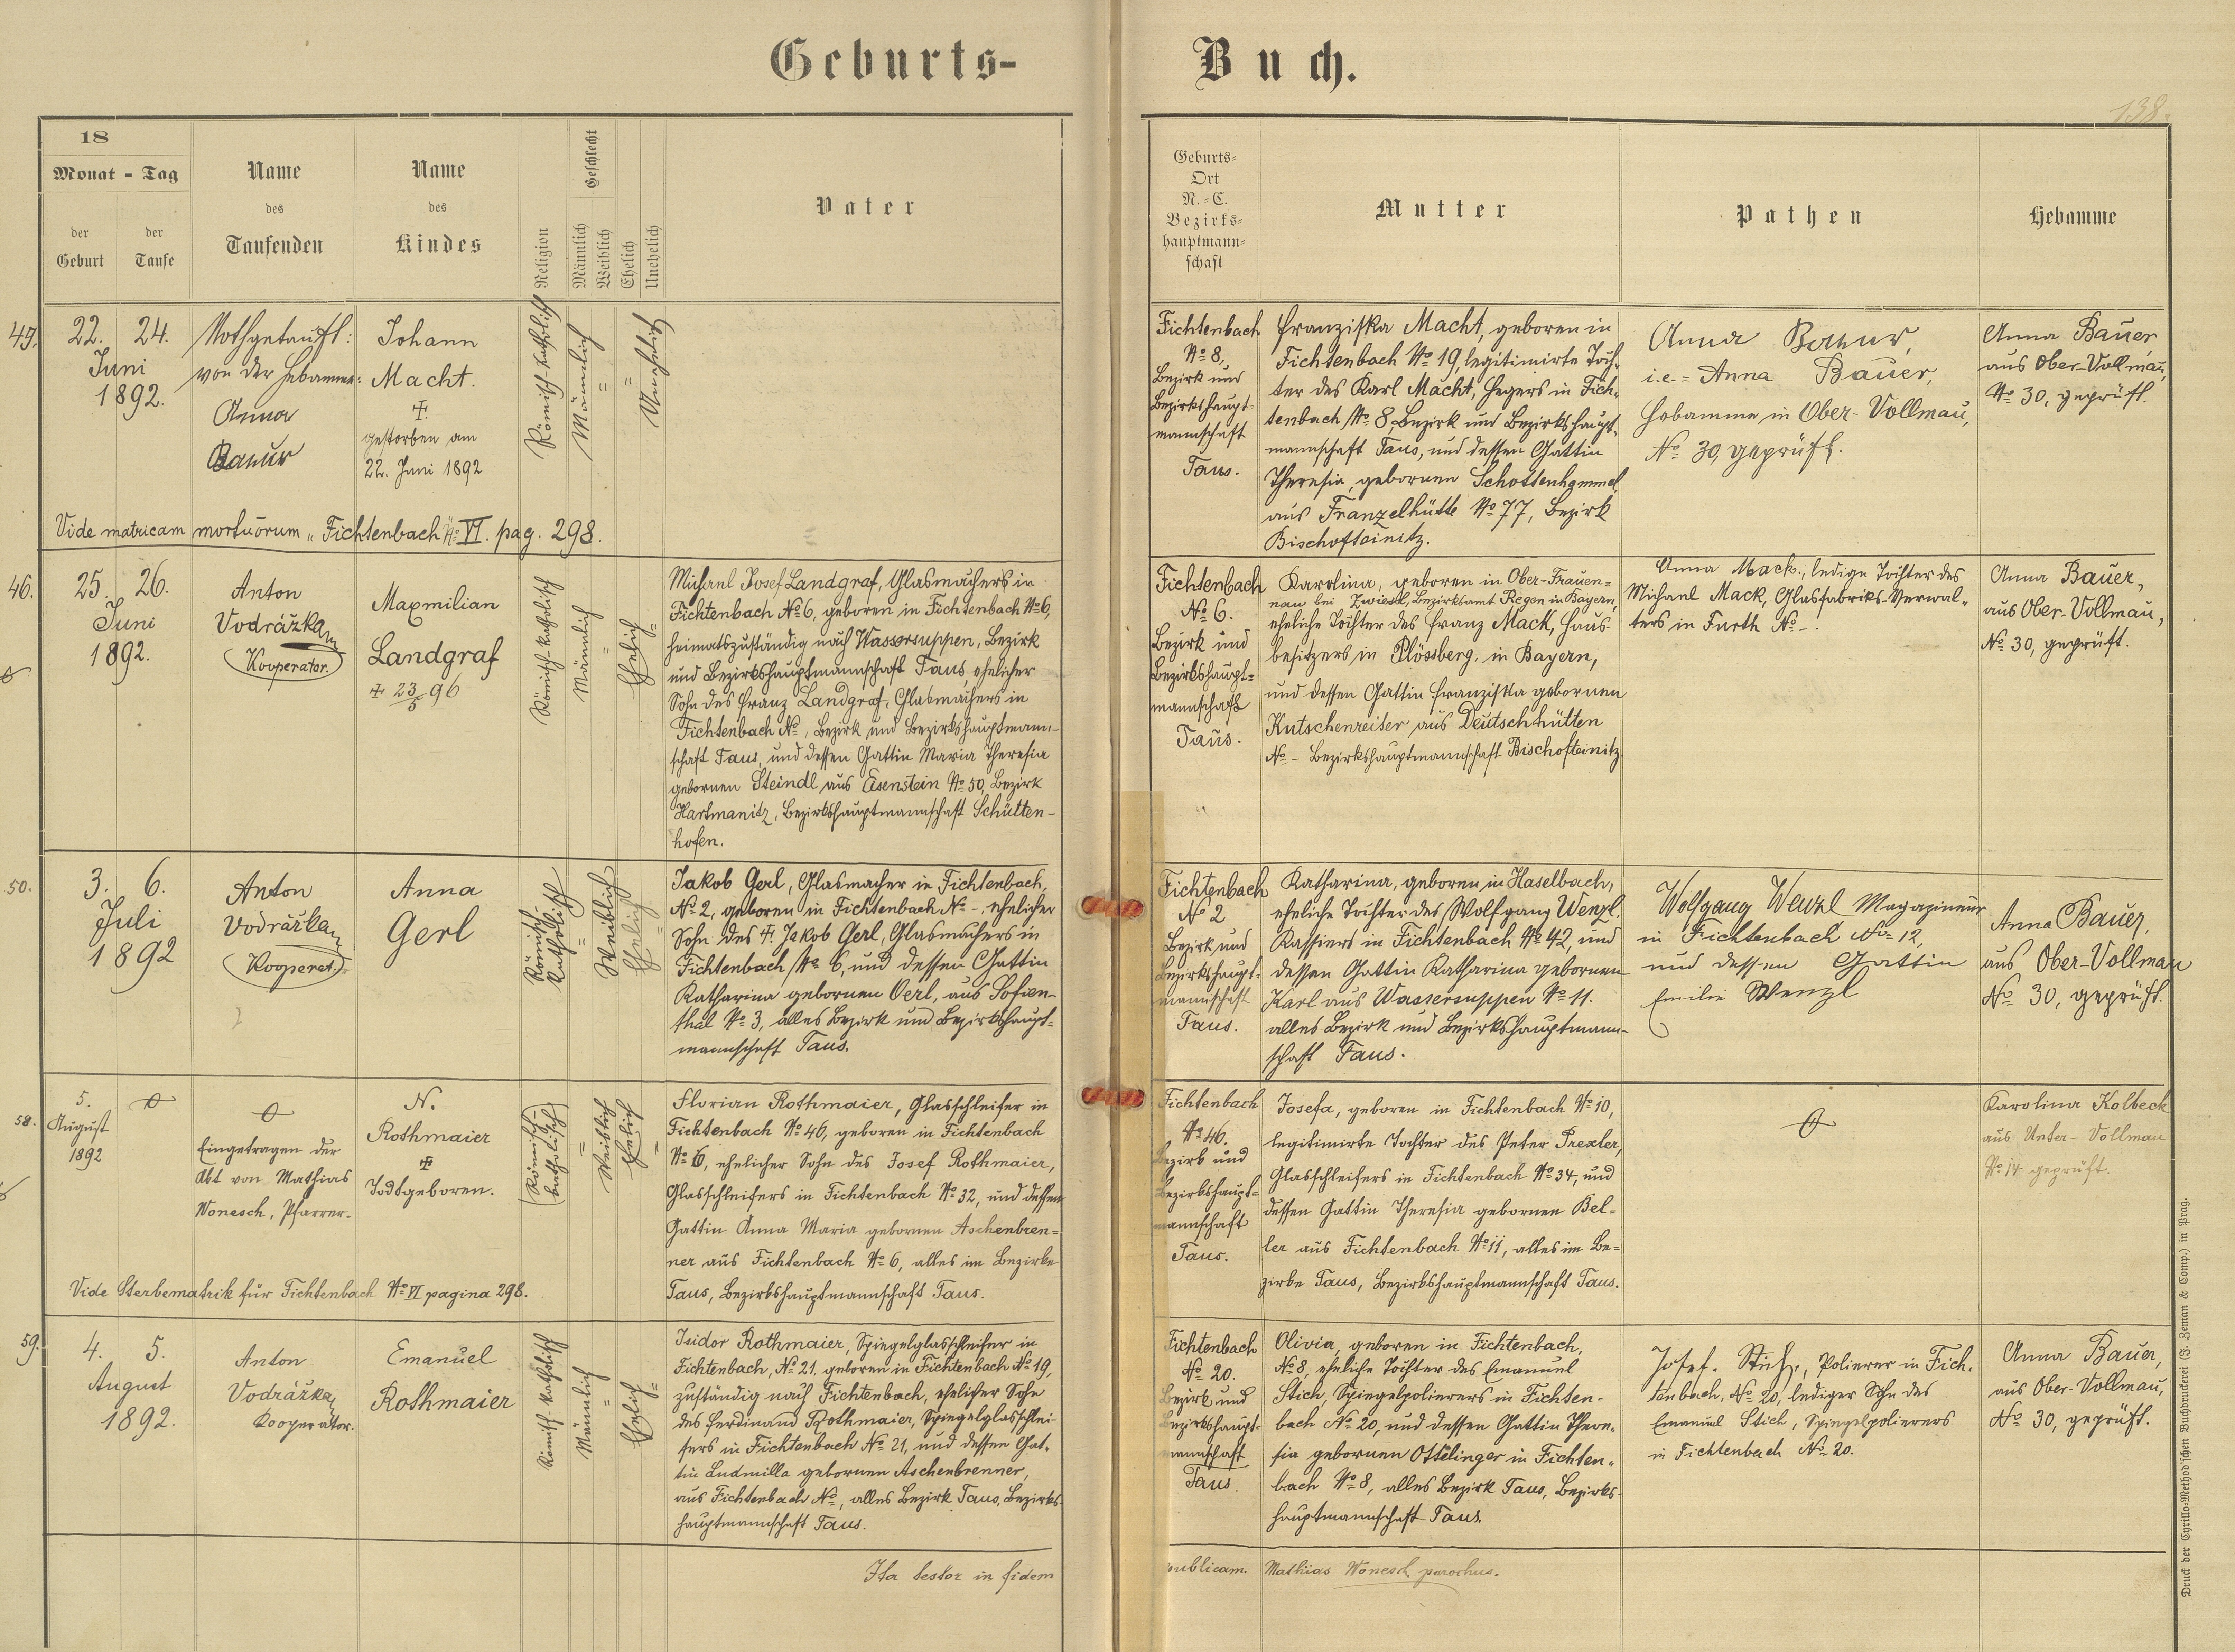 Geburts-
Buch.
138.
18
Monat - Tag
der Geburt
der Taufe
Name
des
Taufenden
Name
des
Kindes
Religion
Geschlecht
Männlich
Weiblich
Ehelich
Unehelich
Vater
Geburts-
Ort
N.-C.
Bezirks-
hauptmann-
schaft
Mutter
Pathen
Hebamme
49.
22. 24.
Juni
1892.
Nothgetauft:
von der Hebamme:
Anna
Bauer
Johann
Macht.
✝
gestorben am
22. Juni 1892
Römisch-katholisch
Männlich
=
=
Unehelich
Vide matricam mortuorum „Fichtenbach" No VI. pag. 298.
Fichtenbach
No 8,
Bezirk und
Bezirkshaupt-
mannschaft
Taus.
Franziska Macht, geboren in
Fichtenbach No 19, legitimirte Toch-
ter des Karl Macht, Hegers in Fich-
tenbach No 8, Bezirk und Bezirkshaupt-
mannschaft Taus, und dessen Gattin
Theresia, gebornen Schottenhamml,
aus Franzelhütte No 77, Bezirk
Bischofteinitz.
Anna Bauer,
i.e. = Anna Bauer,
Hebamme in Ober-Vollmau,
No 30, geprüft.
Anna Bauer,
aus Ober-Vollmau,
No 30, geprüft.
46.
25. 26.
Juni
1892.
Anton
Vodrážka
Kooperator.
Maxmilian
Landgraf
✝ 23/5 96
Römisch-katholisch
Männlich
=
Ehelich
=
Michael Josef Landgraf, Glasmachers in
Fichtenbach No 6, geboren in Fichtenbach No 6,
heimatszuständig nach Wassersuppen, Bezirk
und Bezirkshauptmannschaft Taus, ehelicher
Sohn des Franz Landgraf, Glasmachers in
Fichtenbach No , Bezirk und Bezirkshauptmann-
schaft Taus, und dessen Gattin Maria Theresia
gebornen Steindl aus Eisenstein No 50, Bezirk
Hartmanitz, Bezirkshauptmannschaft Schütten-
hofen.
Fichtenbach
No 6.
Bezirk und
Bezirkshaupt-
mannschaft
Taus.
Karolina, geboren in Ober-Frauen-
nau bei Zwiesel, Bezirksamt Regen in Bayern,
eheliche Tochter des Franz Mack, Haus-
besitzers in Plössberg, in Bayern,
und dessen Gattin Franziska gebornen
Kutschenreiter aus Deutschhütten
No - Bezirkshauptmannschaft Bischofteinitz.
Anna Mack, ledige Tochter des
Michael Mack, Glasfabriks-Verwal-
ters in Furth No -.
Anna Bauer,
aus Ober-Vollmau,
No 30, geprüft.
50.
3. 6.
Juli
1892
Anton
Vodrážka
Kooperat.
Anna
Gerl
Römisch-
katholisch
=
Weiblich
Ehelich
=
Jakob Gerl, Glasmacher in Fichtenbach,
No 2, geboren in Fichtenbach No -, ehelicher
Sohn des ✝ Jakob Gerl, Glasmachers in
Fichtenbach No 6, und dessen Gattin
Katharina gebornen Oerl, aus Sofien-
thal No 3, alles Bezirk und Bezirkshaupt-
mannschaft Taus.
Fichtenbach
No 2
Bezirk und
Bezirkshaupt-
mannschaft
Taus.
Katharina, geboren in Haselbach,
eheliche Tochter des Wolfgang Wenzl,
Kassiers in Fichtenbach No 42, und
dessen Gattin Katharina gebornen
Karl aus Wassersuppen No 11.
alles Bezirk und Bezirkshauptmann-
schaft Taus.
Wolfgang Wenzl Magazineur
in Fichtenbach No 12,
und dessen Gattin
Emilie Wenzl
Anna Bauer,
aus Ober-Vollmau
No 30, geprüft.
58.
5.
August
1892
Eingetragen der
Akt von Mathias
Wonesch, Pfarrer.
N.
Rothmaier
✝
Todtgeboren.
(Römisch-
katholisch)
=
Weiblich
Ehelich
=
Vide Sterbematrik für Fichtenbach No VI pagina 298.
Florian Rothmaier, Glasschleifer in
Fichtenbach No 46, geboren in Fichtenbach
No 6, ehelicher Sohn des Josef Rothmaier,
Glasschleifers in Fichtenbach No 32, und dessen
Gattin Anna Maria gebornen Aschenbren-
ner aus Fichtenbach No 6, alles im Bezirke
Taus, Bezirkshauptmannschaft Taus.
Fichtenbach
No 46.
Bezirk und
Bezirkshaupt-
mannschaft
Taus.
Josefa, geboren in Fichtenbach No 10,
legitimirte Tochter des Peter Prexler,
Glasschleifers in Fichtenbach No 34, und
dessen Gattin Theresia gebornen Bel-
ler aus Fichtenbach No 11, alles im Be-
zirke Taus, Bezirkshauptmannschaft Taus.
Karolina Kolbeck
aus Unter-Vollmau
No 14 geprüft.
59.
4. 5.
August
1892.
Anton
Vodrážka
Kooperator.
Emanuel
Rothmaier
Römisch-katholisch
Männlich
=
Ehelich
=
Isidor Rothmaier, Spiegelglasschleifer in
Fichtenbach, No 21, geboren in Fichtenbach No 19,
zuständig nach Fichtenbach, ehelicher Sohn
des Ferdinand Rothmaier, Spiegelglasschlei-
fers in Fichtenbach No 21, und dessen Gat-
tin Ludmilla gebornen Aschenbrenner,
aus Fichtenbach No , alles Bezirk Taus, Bezirks-
hauptmannschaft Taus.
Fichtenbach
No 20.
Bezirk und
Bezirkshaupt-
mannschaft
Taus.
Olivia, geboren in Fichtenbach,
No 8, eheliche Tochter des Emanuel
Stich, Spiegelpolierers in Fichten-
bach No 20, und dessen Gattin There-
sia gebornen Ottelinger in Fichten-
bach No 8, alles Bezirk Taus, Bezirks-
hauptmannschaft Taus
Josef. Stich, Polierer in Fich-
tenbach, No 20, lediger Sohn des
Emanuel Stich, Spiegelpolierers
in Fichtenbach No 20.
Anna Bauer,
aus Ober-Vollmau,
No 30, geprüft.
Ita testor in fidem
publicam. Mathias Wonesch parochus.
Druck der Cyrillo-Method'schen Buchdruckerei (J. Zeman & Comp.) in Prag.